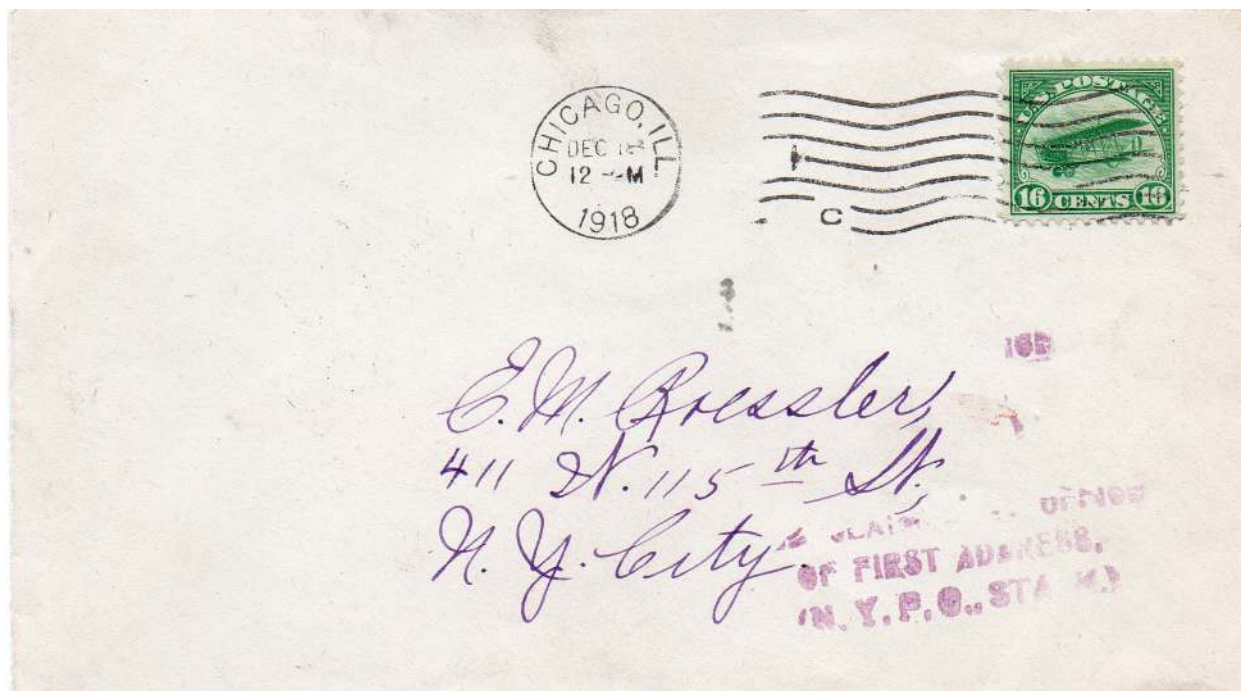 CHICAGO, ILL.
DEC 18
12 M
1918
U.S. POSTAGE
16 CENTS 16
C
E. M. Roessler,
411 W. 115th St.,
N. Y. City.
OFFICE
OF FIRST ADDRESS,
(N. Y. P. O., STA.